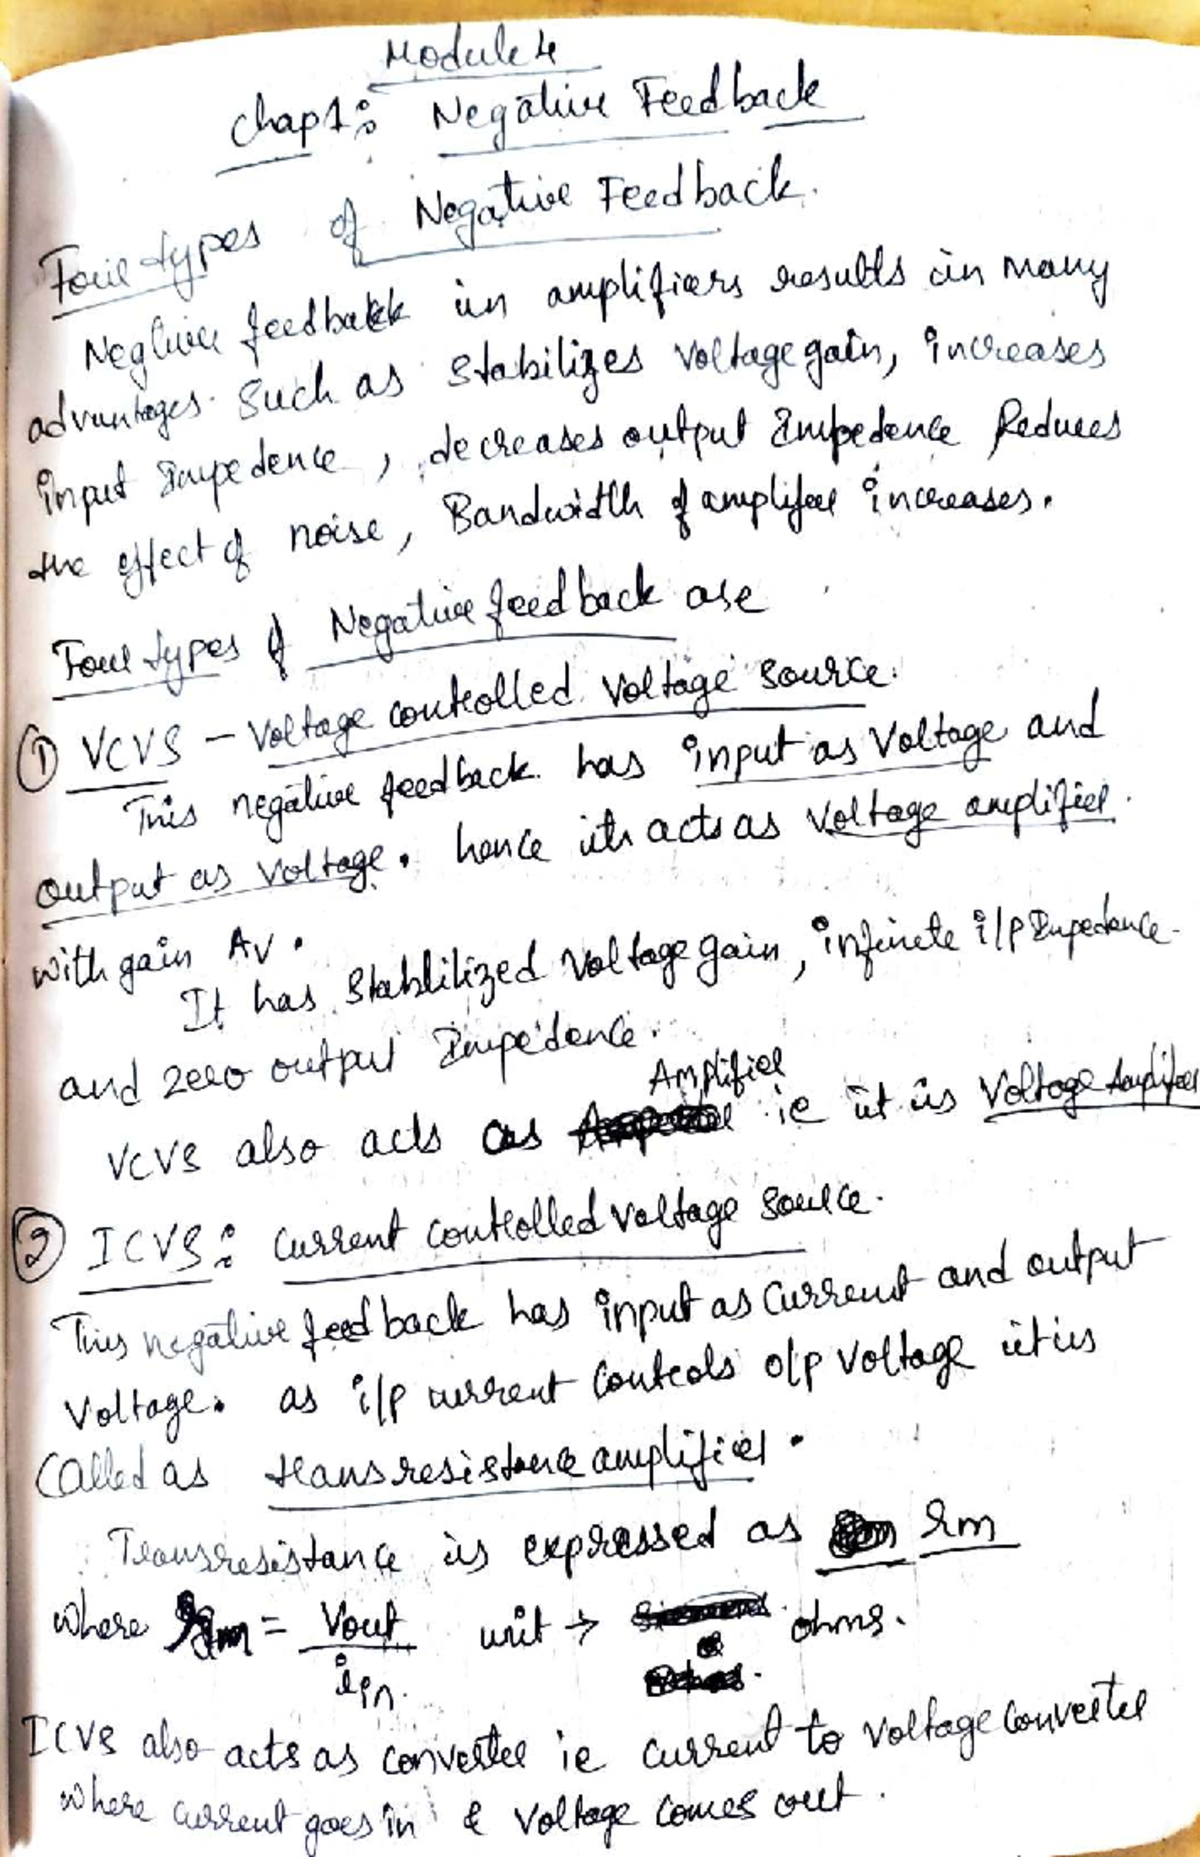 Module 4
Chap 1: Negative Feedback
Four types of Negative Feedback.
Negtive feedback in amplifiers results in many
advantages. Such as Stabilizes Voltage gain, increases
input Impedence, decreases output Impedence Reduces
the effect of noise, Bandwidth of amplifier increases.
Four types of Negative feedback are
① VCVS - Voltage controlled Voltage Source.
This negative feedback has input as Voltage and
output as Voltage. hence it acts as Voltage amplifier.
with gain Av.
It has Stablilized Voltage gain, infinite i/p Impedence
and zero output Impedence.
Amplifier
VCVS also acts as ie it is Voltage Amplifier
② ICVS: Current controlled Voltage Source.
This negative feedback has input as Current and output
Voltage. as i/p current Controls o/p Voltage it is
Called as transresistance amplifier.
Transresistance is expressed as rm
where rm = Vout / iin unit → ohms.
ICVS also acts as converter ie current to Voltage Converter
where current goes in & Voltage Comes out.